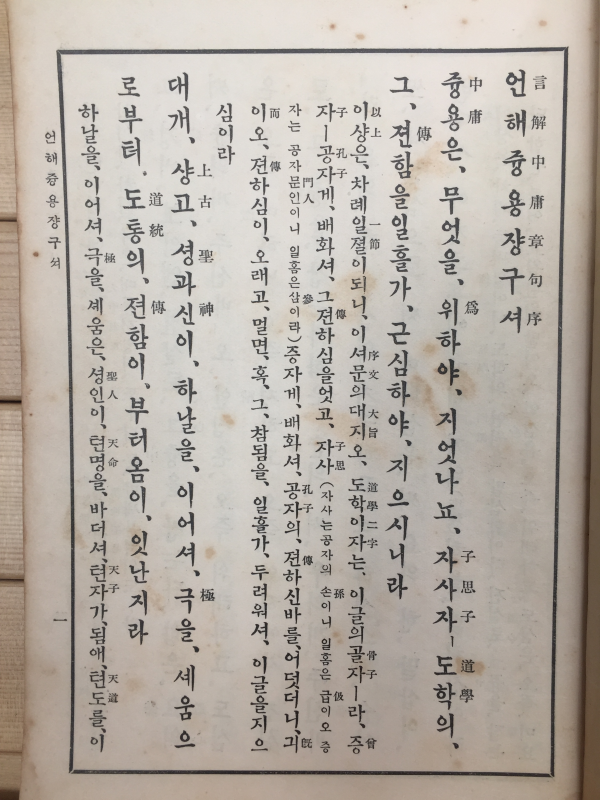 言解中庸章句序
언해즁용쟝구셔
中庸 爲 子思子 道學
즁용은、무엇을、위하야、지엇나뇨、자사자ㅣ도학의、
傳
그、젼함을일흘가、근심하야、지으시니라
以上 一節 序文 大旨 道學二字 骨子 曾
이샹은、차례일졀이되니、이셔문의대지오、도학이자는、이글의골자ㅣ라、증
子 孔子 傳 子思 孫 伋
자ㅣ공자게、배화셔、그젼하심을엇고、자사(자사는공자의 손이니 일홈은 급이오 증
門人 參 孔子 傳 旣
자는 공자문인이니 일홈은삼이라)증자게、배화셔、공자의、젼하신바를、어덧더니、긔
而 傳
이오、젼하심이、오래고、멀면、혹、그、참됨을、일흘가、두려워셔、이글을지으
심이라
上古 聖 神 極
대개、샹고、셩과신이、하날을、이어셔、극을、셰움으
道統 傳
로부터、도통의、젼함이、부터옴이、잇난지라
極 聖人 天命 天子 天道
하날을、이어셔、극을、셰움은、셩인이、텬명을、바더셔、텬자가、됨애、텬도를、이
언해즁용쟝구셔
一